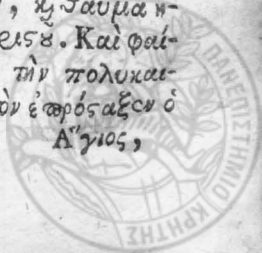 , καὶ θαῦμα η-
ριϛου. Καὶ φαί-
τὴν πολυκαι-
ὸν ἐπρόςαξεν ὁ
Ἅγιος,
ΠΑΝΕΠΙΣΤΗΜΙΟ ΚΡΗΤΗΣ